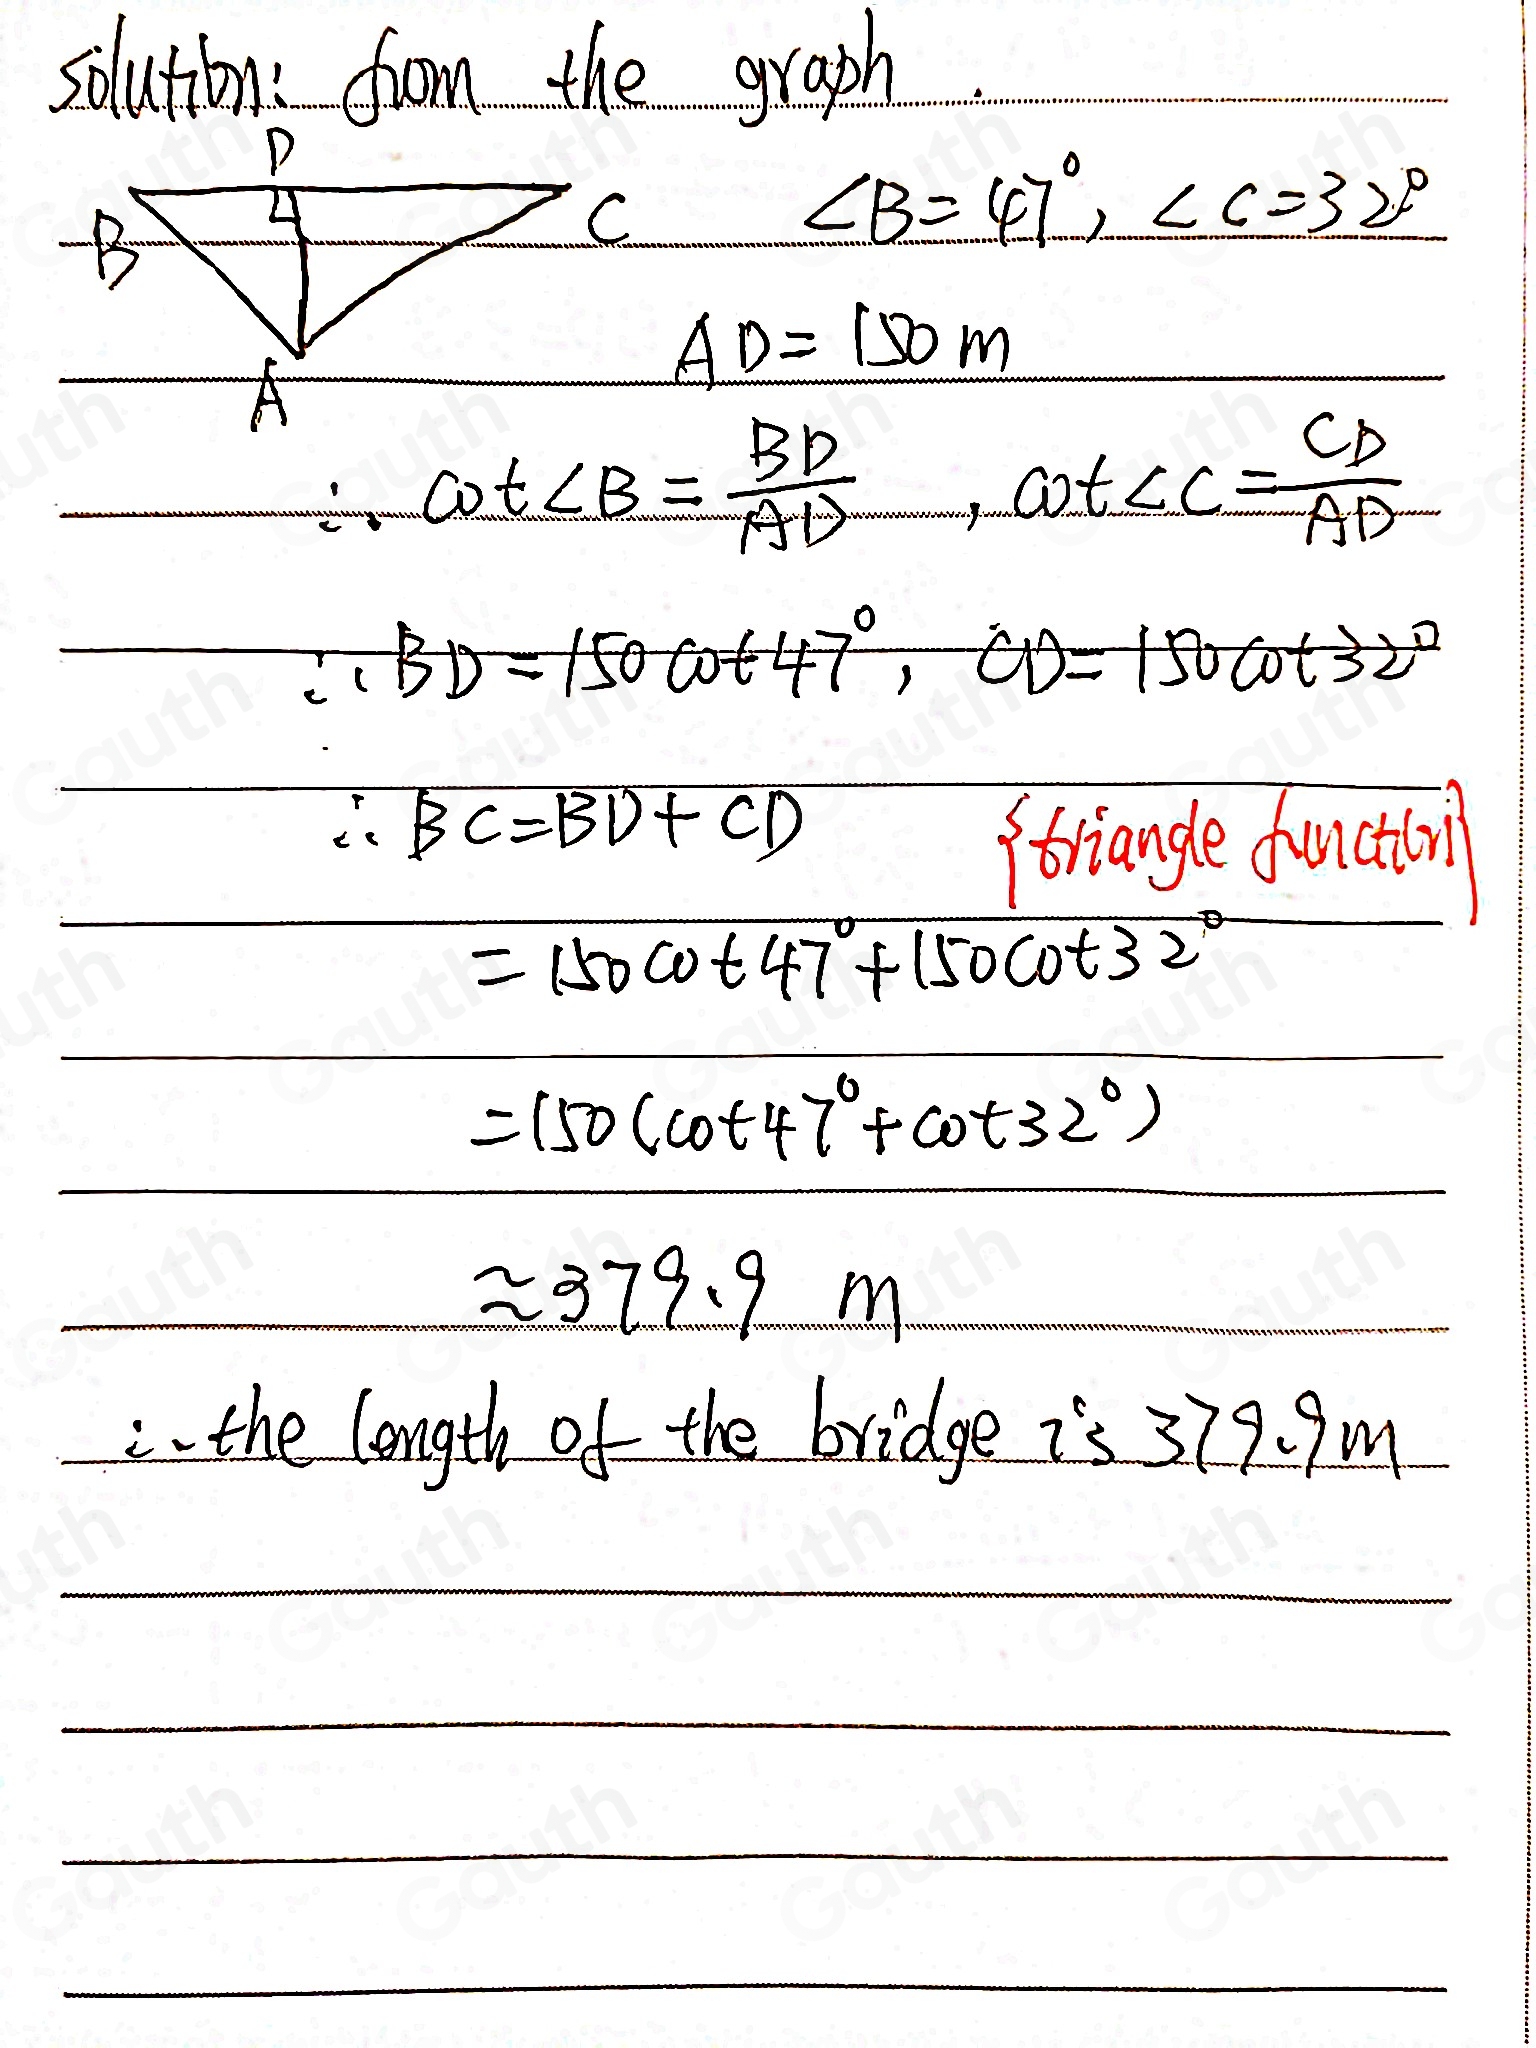 solution: from the graph.
D
B
C
∠B=47°, ∠C=32°
AD=150m
A
∴ cot∠B = BD/AD , cot∠C = CD/AD
∴ BD=150cot47°, CD=150cot32°
∴ BC=BD+CD {triangle function}
=150cot47°+150cot32°
=150(cot47°+cot32°)
≈379.9 m
∴ the length of the bridge is 379.9m